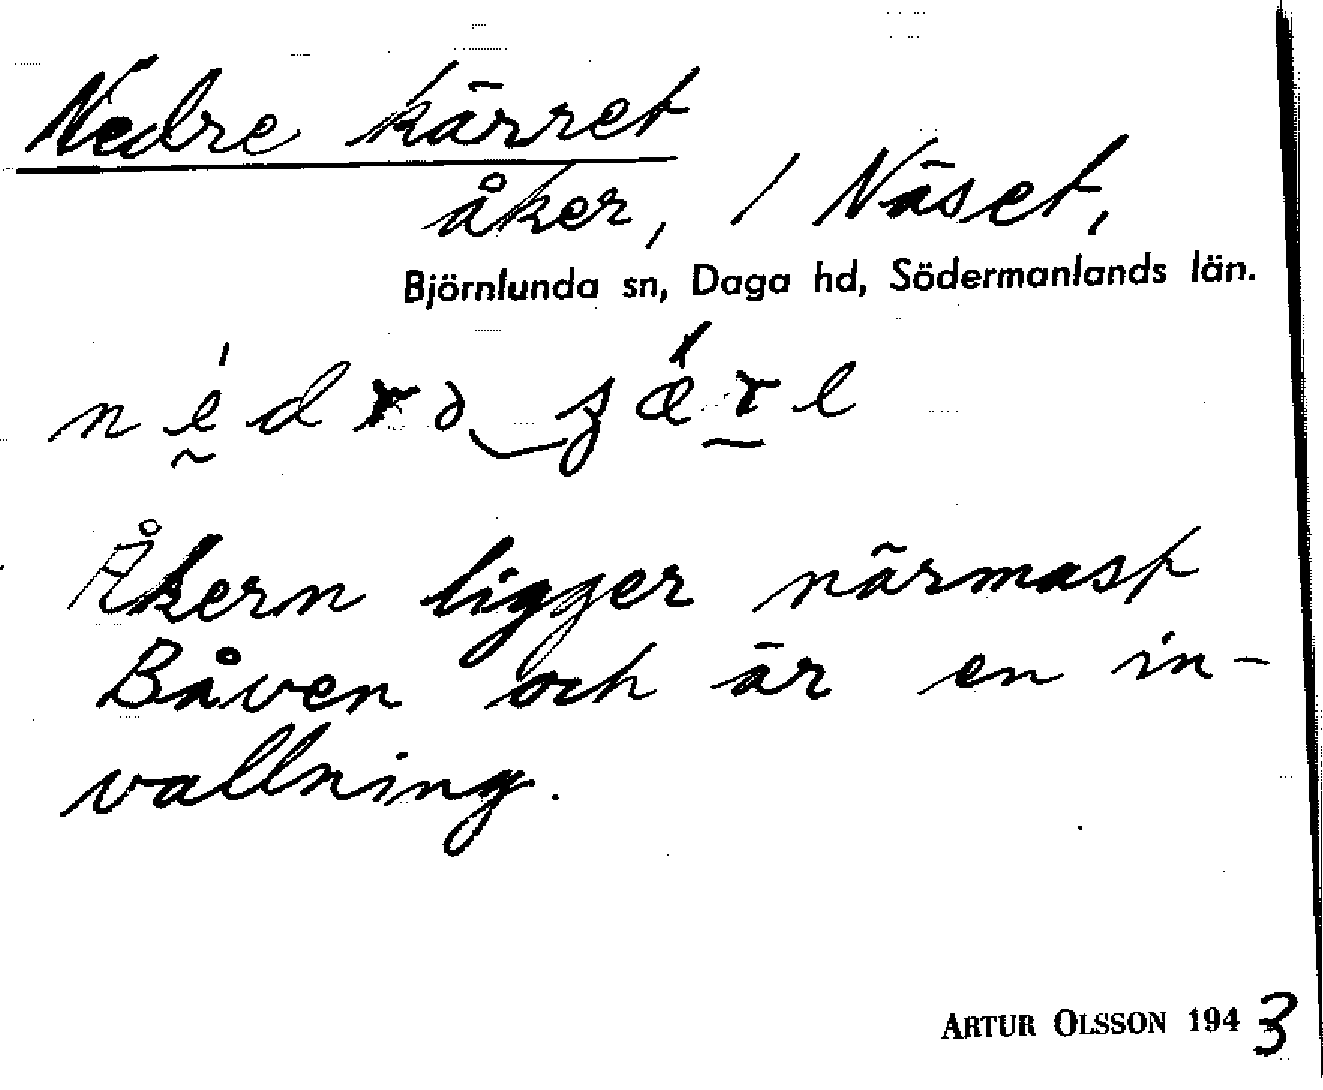 Nedre kärret
åker, / Näset,
Björnlunda sn, Daga hd, Södermanlands län.
Åkern ligger närmast
Båven och är en in-
vallning.
ARTUR OLSSON 1943